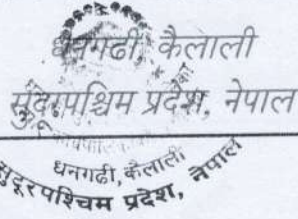 धनगढी, कैलाली
सुदूरपश्चिम प्रदेश, नेपाल
धनगढी, कैलाली
सुदूरपश्चिम प्रदेश, नेपाल